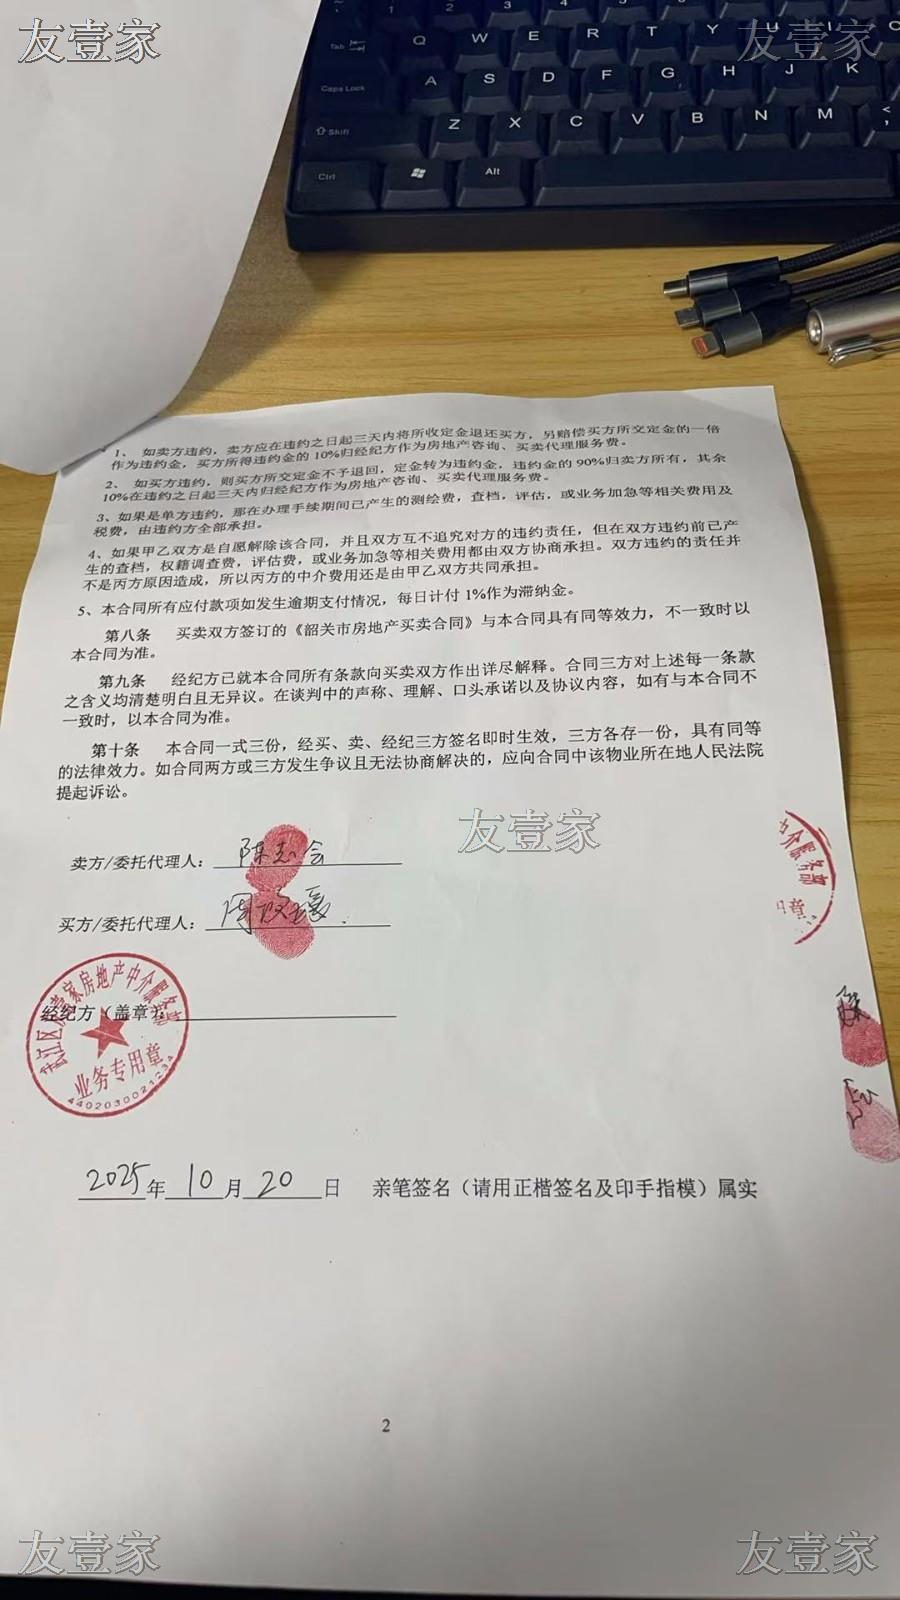 友壹家
友壹家
1、 如卖方违约，卖方应在违约之日起三天内将所收定金退还买方，另赔偿买方所交定金的一倍
作为违约金，买方所得违约金的 10%归经纪方作为房地产咨询、买卖代理服务费。
2、 如买方违约，则买方所交定金不予退回，定金转为违约金，违约金的 90%归卖方所有，其余
10%在违约之日起三天内归经纪方作为房地产咨询、买卖代理服务费。
3、如果是单方违约，那在办理手续期间已产生的测绘费，查档，评估，或业务加急等相关费用及
税费，由违约方全部承担。
4、如果甲乙双方是自愿解除该合同，并且双方互不追究对方的违约责任，但在双方违约前已产
生的查档，权籍调查费，评估费，或业务加急等相关费用都由双方协商承担。双方违约的责任并
不是丙方原因造成，所以丙方的中介费用还是由甲乙双方共同承担。
5、本合同所有应付款项如发生逾期支付情况，每日计付 1%作为滞纳金。
第八条 买卖双方签订的《韶关市房地产买卖合同》与本合同具有同等效力，不一致时以
本合同为准。
第九条 经纪方已就本合同所有条款向买卖双方作出详尽解释。合同三方对上述每一条款
之含义均清楚明白且无异议。在谈判中的声称、理解、口头承诺以及协议内容，如有与本合同不
一致时，以本合同为准。
第十条 本合同一式三份，经买、卖、经纪三方签名即时生效，三方各存一份，具有同等
的法律效力。如合同两方或三方发生争议且无法协商解决的，应向合同中该物业所在地人民法院
提起诉讼。
友壹家
卖方/委托代理人：陈志会
买方/委托代理人：
中介服务部
用章
经纪方（盖章）：
武江区友壹家房地产中介服务部
业务专用章
4402030021234
2025年10月20日 亲笔签名（请用正楷签名及印手指模）属实
2
友壹家
友壹家
Tab
Q W E R T Y U I
Caps Lock
A S D F G H J K
Shift
Z X C V B N M
Ctrl
Alt